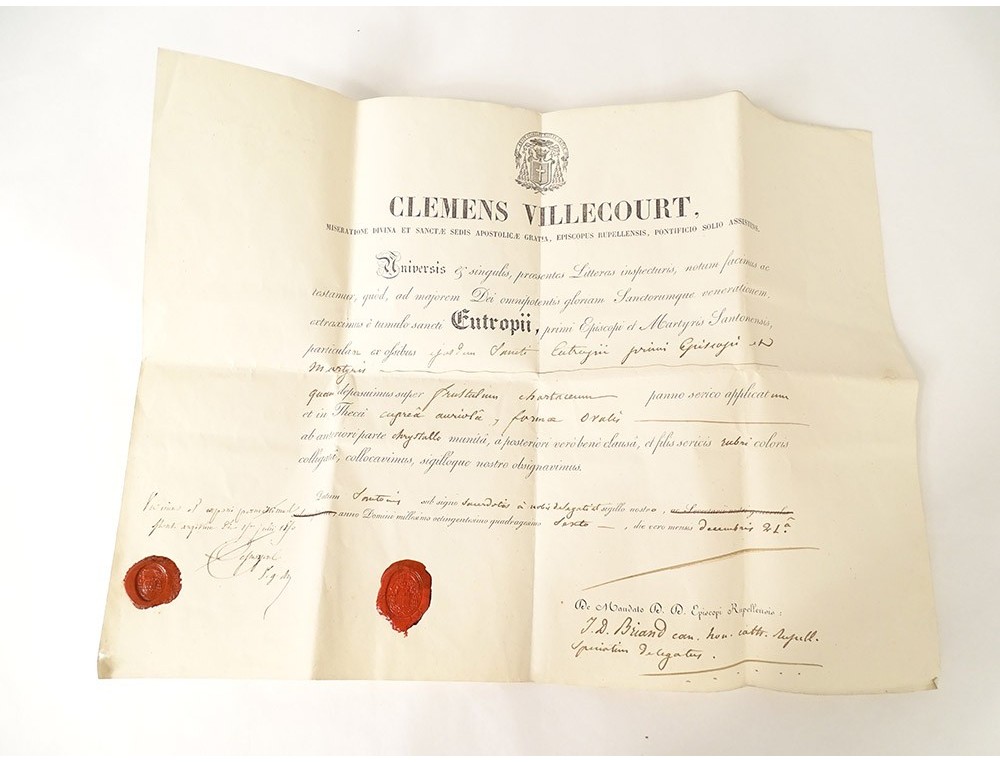 CLEMENS VILLECOURT,
MISERATIONE DIVINA ET SANCTÆ SEDIS APOSTOLICÆ GRATIA, EPISCOPUS RUPELLENSIS, PONTIFICIO SOLIO ASSISTENS.
Universis & singulis, præsentes Litteras inspecturis, notum facimus ac
testamur, quòd, ad majorem Dei omnipotentis gloriam Sanctorumque venerationem,
extraximus è tumulo sancti Eutropii, primi Episcopi et Martyris Santonensis,
particulam ex ossibus Sancti Eutropii primi Episcopi et
Martyris
quam deposuimus super frustulum chartaceum panno serico applicatum
et in Thecâ cupreâ auriolâ, formæ Ovalis
ab anteriori parte chrystallo munitâ, à posteriori verò benè clausâ, et filis sericis rubri coloris
colligatâ, collocavimus, sigilloque nostro obsignavimus.
Datum Santonis sub signo sacerdotis à nobis delegati & sigillo nostro,
anno Domini millesimo octingentesimo quadragesimo Sexto, die vero mensis decembris 21â.
De Mandato D. D. Episcopi Rupellensis:
J. D. Briand can. hon. cath. Rupell.
specialim delegatus.